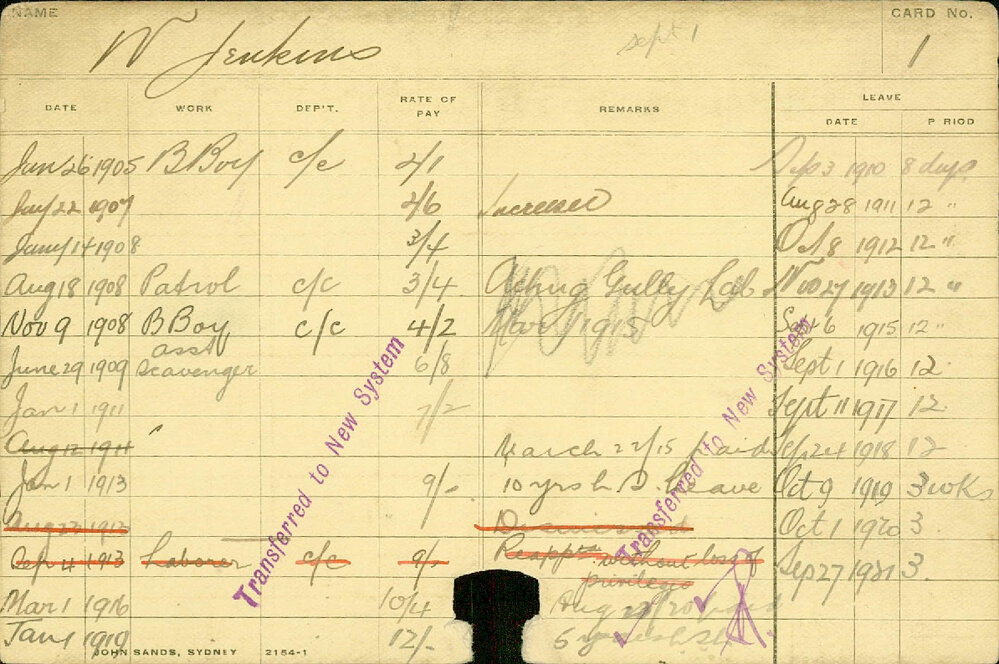 NAME CARD No.
W Jenkins Sept 1 1
DATE WORK DEP'T. RATE OF PAY REMARKS LEAVE
DATE P RIOD
Jan 26 1905 B Boy c/c 2/1 Sep 3 1910 8 days
22 1907 2/6 Increase Aug 28 1911 12 "
Jany 14 1908 3/4 Oct 8 1912 12 "
Aug 18 1908 Patrol c/c 3/4 Gully Lab Nov 27 1913 12 "
Nov 9 1908 B Boy c/c 4/2 1915 Sept 6 1915 12 "
June 29 1909 asst Scavenger 6/8 Sept 1 1916 12
Jan 1 1911 7/2 Sept 11 1917 12
Aug 12 1911 March 22/15 Paid Sep 24 1918 12
Jan 1 1913 9/- 10 yrs L. S. Leave Oct 9 1919 3 wks
Aug 23 1913 Oct 1 1920 3
Sep 4 1913 Laborer c/c 9/- Reapptd without loss of privilege Sep 27 1921 3.
Mar 1 1916 10/4 Aug
Jan 1 1919 12/- 5
Transferred to New System
Transferred to New System
JOHN SANDS, SYDNEY 2154-1